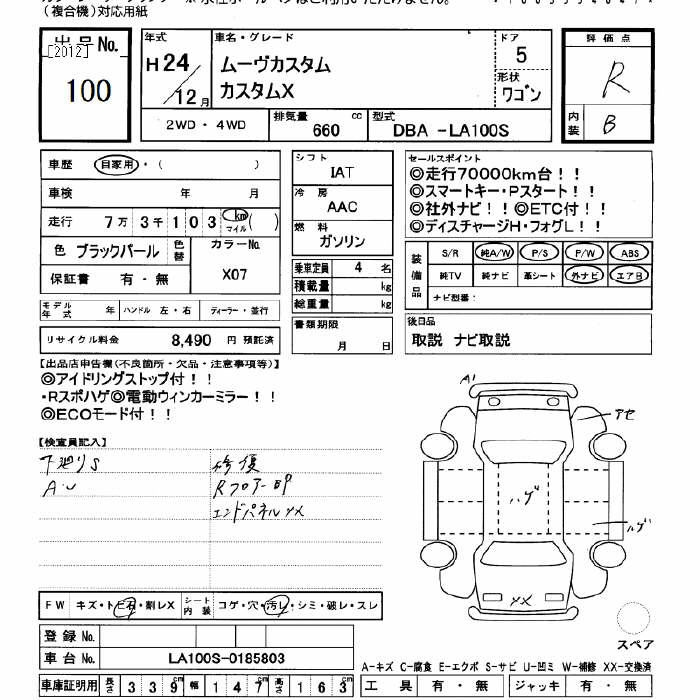 （複合機）対応用紙
出品No.
[2012]
100
年式
H24/12月
車名・グレード
ムーヴカスタム
カスタムX
ドア
5
形状
ワゴン
評価点
R
内装
B
2WD・4WD
排気量
660
cc
型式
DBA -LA100S
車歴
自家用・（ ）
車検 年 月
走行 7万3千103 km マイル（ ）
色 ブラックパール
色替
カラーNo.
X07
保証書 有・無
モデル年式 年
ハンドル 左・右
ディーラー・並行
リサイクル料金 8,490 円 預託済
シフト
IAT
冷房
AAC
燃料
ガソリン
乗車定員 4 名
積載量 kg
総重量 kg
書類期限
月 日
セールスポイント
◎走行70000km台！！
◎スマートキー・Pスタート！！
◎社外ナビ！！◎ETC付！！
◎ディスチャージH・フォグL！！
装備品
S/R 純A/W P/S P/W ABS
純TV 純ナビ 革シート 外ナビ エアB
ナビ型番：
後日品
取説 ナビ取説
【出品店申告欄（不良箇所・欠品・注意事項等）】
◎アイドリングストップ付！！
・Rスポハゲ◎電動ウィンカーミラー！！
◎ECOモード付！！
【検査員記入】
下廻りS
AU
修復
Rフロアー凹P
エンドパネルXX
A1
アセ
ハゲ
ハゲ
XX
スペア
FW キズ・トビ石・割レX
シート内装 コゲ・穴・汚レ・シミ・破レ・スレ
登録No.
車台No. LA100S-0185803
車庫証明用 長さ 339cm 幅 147cm 高さ 163cm
A-キズ C-腐食 E-エクボ S-サビ U-凹ミ W-補修 XX-交換済
工具 有・無
ジャッキ 有・無